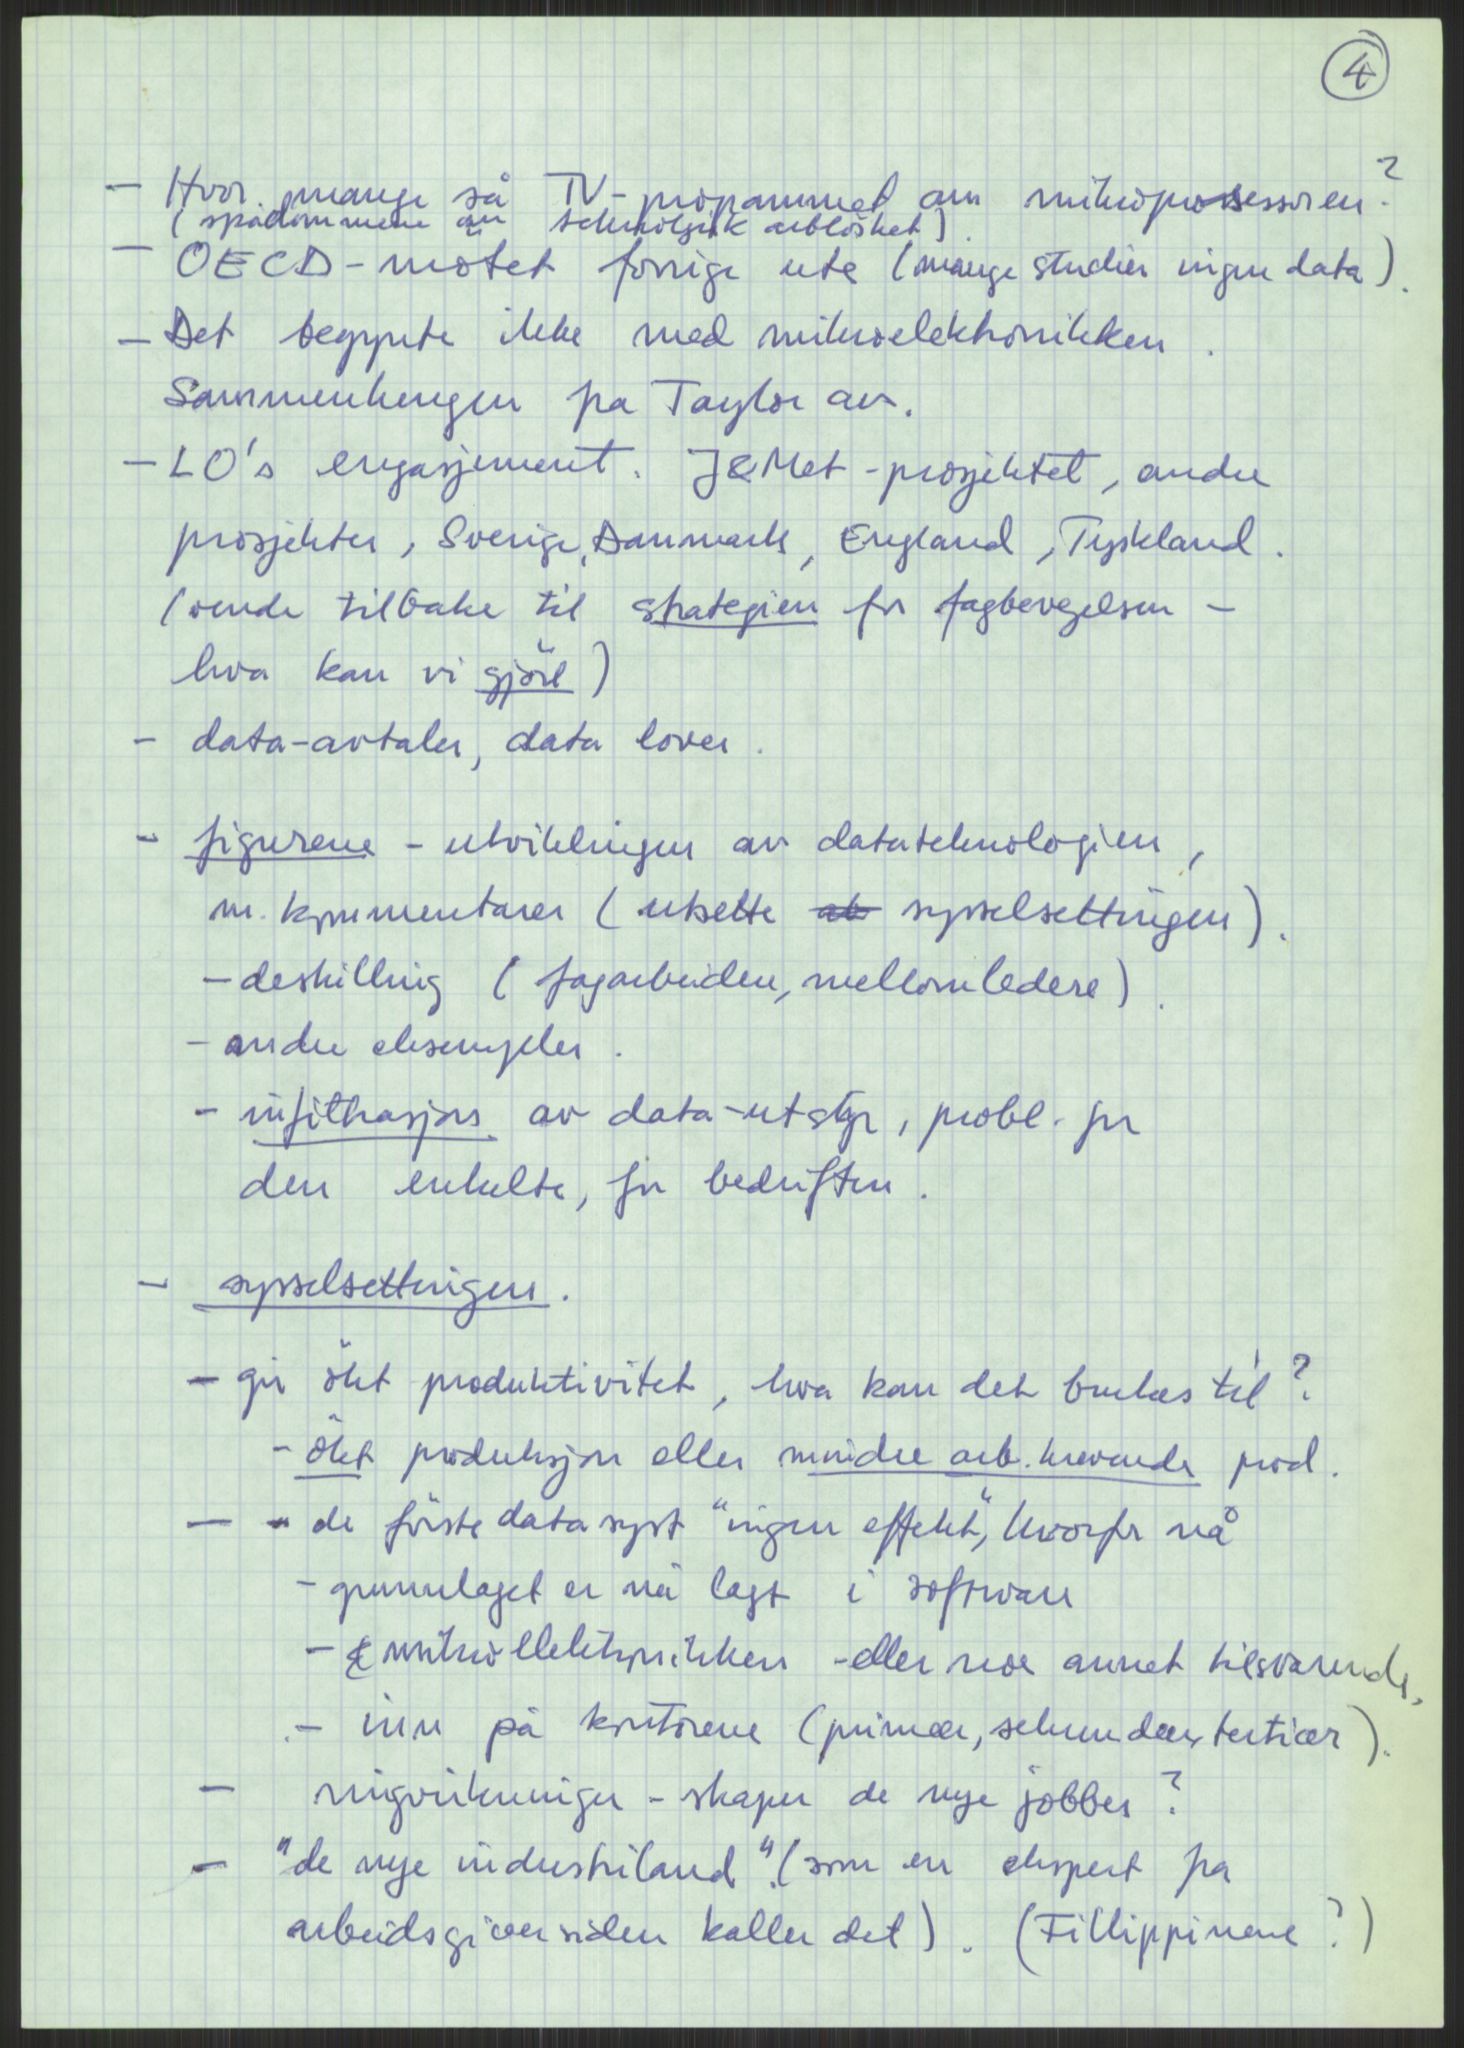 4
- Hvor mange så TV-programmet om mikroprosessoren?
(spådommene om teknologisk arbløshet).
- OECD-møtet forrige uke (mange studier ingen data).
- Det begynte ikke med mikroelektronikken.
Sammenhengen fra Taylor av.
- LO's engasjement. J&Met-prosjektet, andre
prosjekter, Sverige, Danmark, England, Tyskland.
(vende tilbake til strategien for fagbevegelsen -
hva kan vi gjöre)
- data-avtaler, data lover.
- figurene - utviklingen av datateknologien,
m. kommentarer (utsette sysselsettingen).
- deskilling (fagarbeidere, mellomledere).
- andre eksempler.
- infiltrasjon av data-utstyr, probl. for
den enkelte, for bedriften.
- sysselsettingen.
- gir ökt produktivitet, hva kan det brukes til?
- ökt produksjon eller mindre arb.krevende prod.
- - de förste datasyst "ingen effekt", hvorfor nå
- grunnlaget er nå lagt i software
- & mikroelektronikken - eller noe annet tilsvarende.
- inn på kontorene (primær, sekundær, tertiær).
- ringvirkninger - skaper de nye jobber?
- "de nye industriland". (som en ekspert fra
arbeidsgiversiden kaller det). (Fillippinene?)